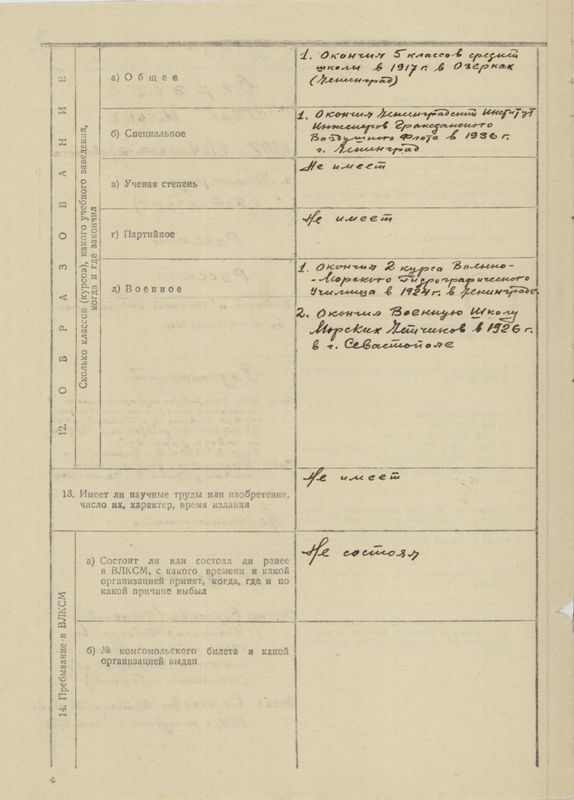 12. ОБРАЗОВАНИЕ
Сколько классов (курсов), какого учебного заведения,
когда и где закончил
а) Общее
1. Окончил 5 классов средней
школы в 1917 г. в Озерках
(Ленинград)
б) Специальное
1. Окончил Ленинградский Институт
Инженеров Гражданского
Воздушного Флота в 1936 г.
г. Ленинград
в) Ученая степень
Не имеет
г) Партийное
Не имеет
д) Военное
1. Окончил 2 курса Военно-
-Морского Гидрографического
Училища в 1924 г. в Ленинграде.
2. Окончил Военную Школу
Морских Летчиков в 1926 г.
в г. Севастополе
13. Имеет ли научные труды или изобретения,
число их, характер, время издания
Не имеет
14. Пребывание в ВЛКСМ
а) Состоит ли или состоял ли ранее
в ВЛКСМ, с какого времени и какой
организацией принят, когда, где и по
какой причине выбыл
Не состоял
б) № комсомольского билета и какой
организацией выдан
4